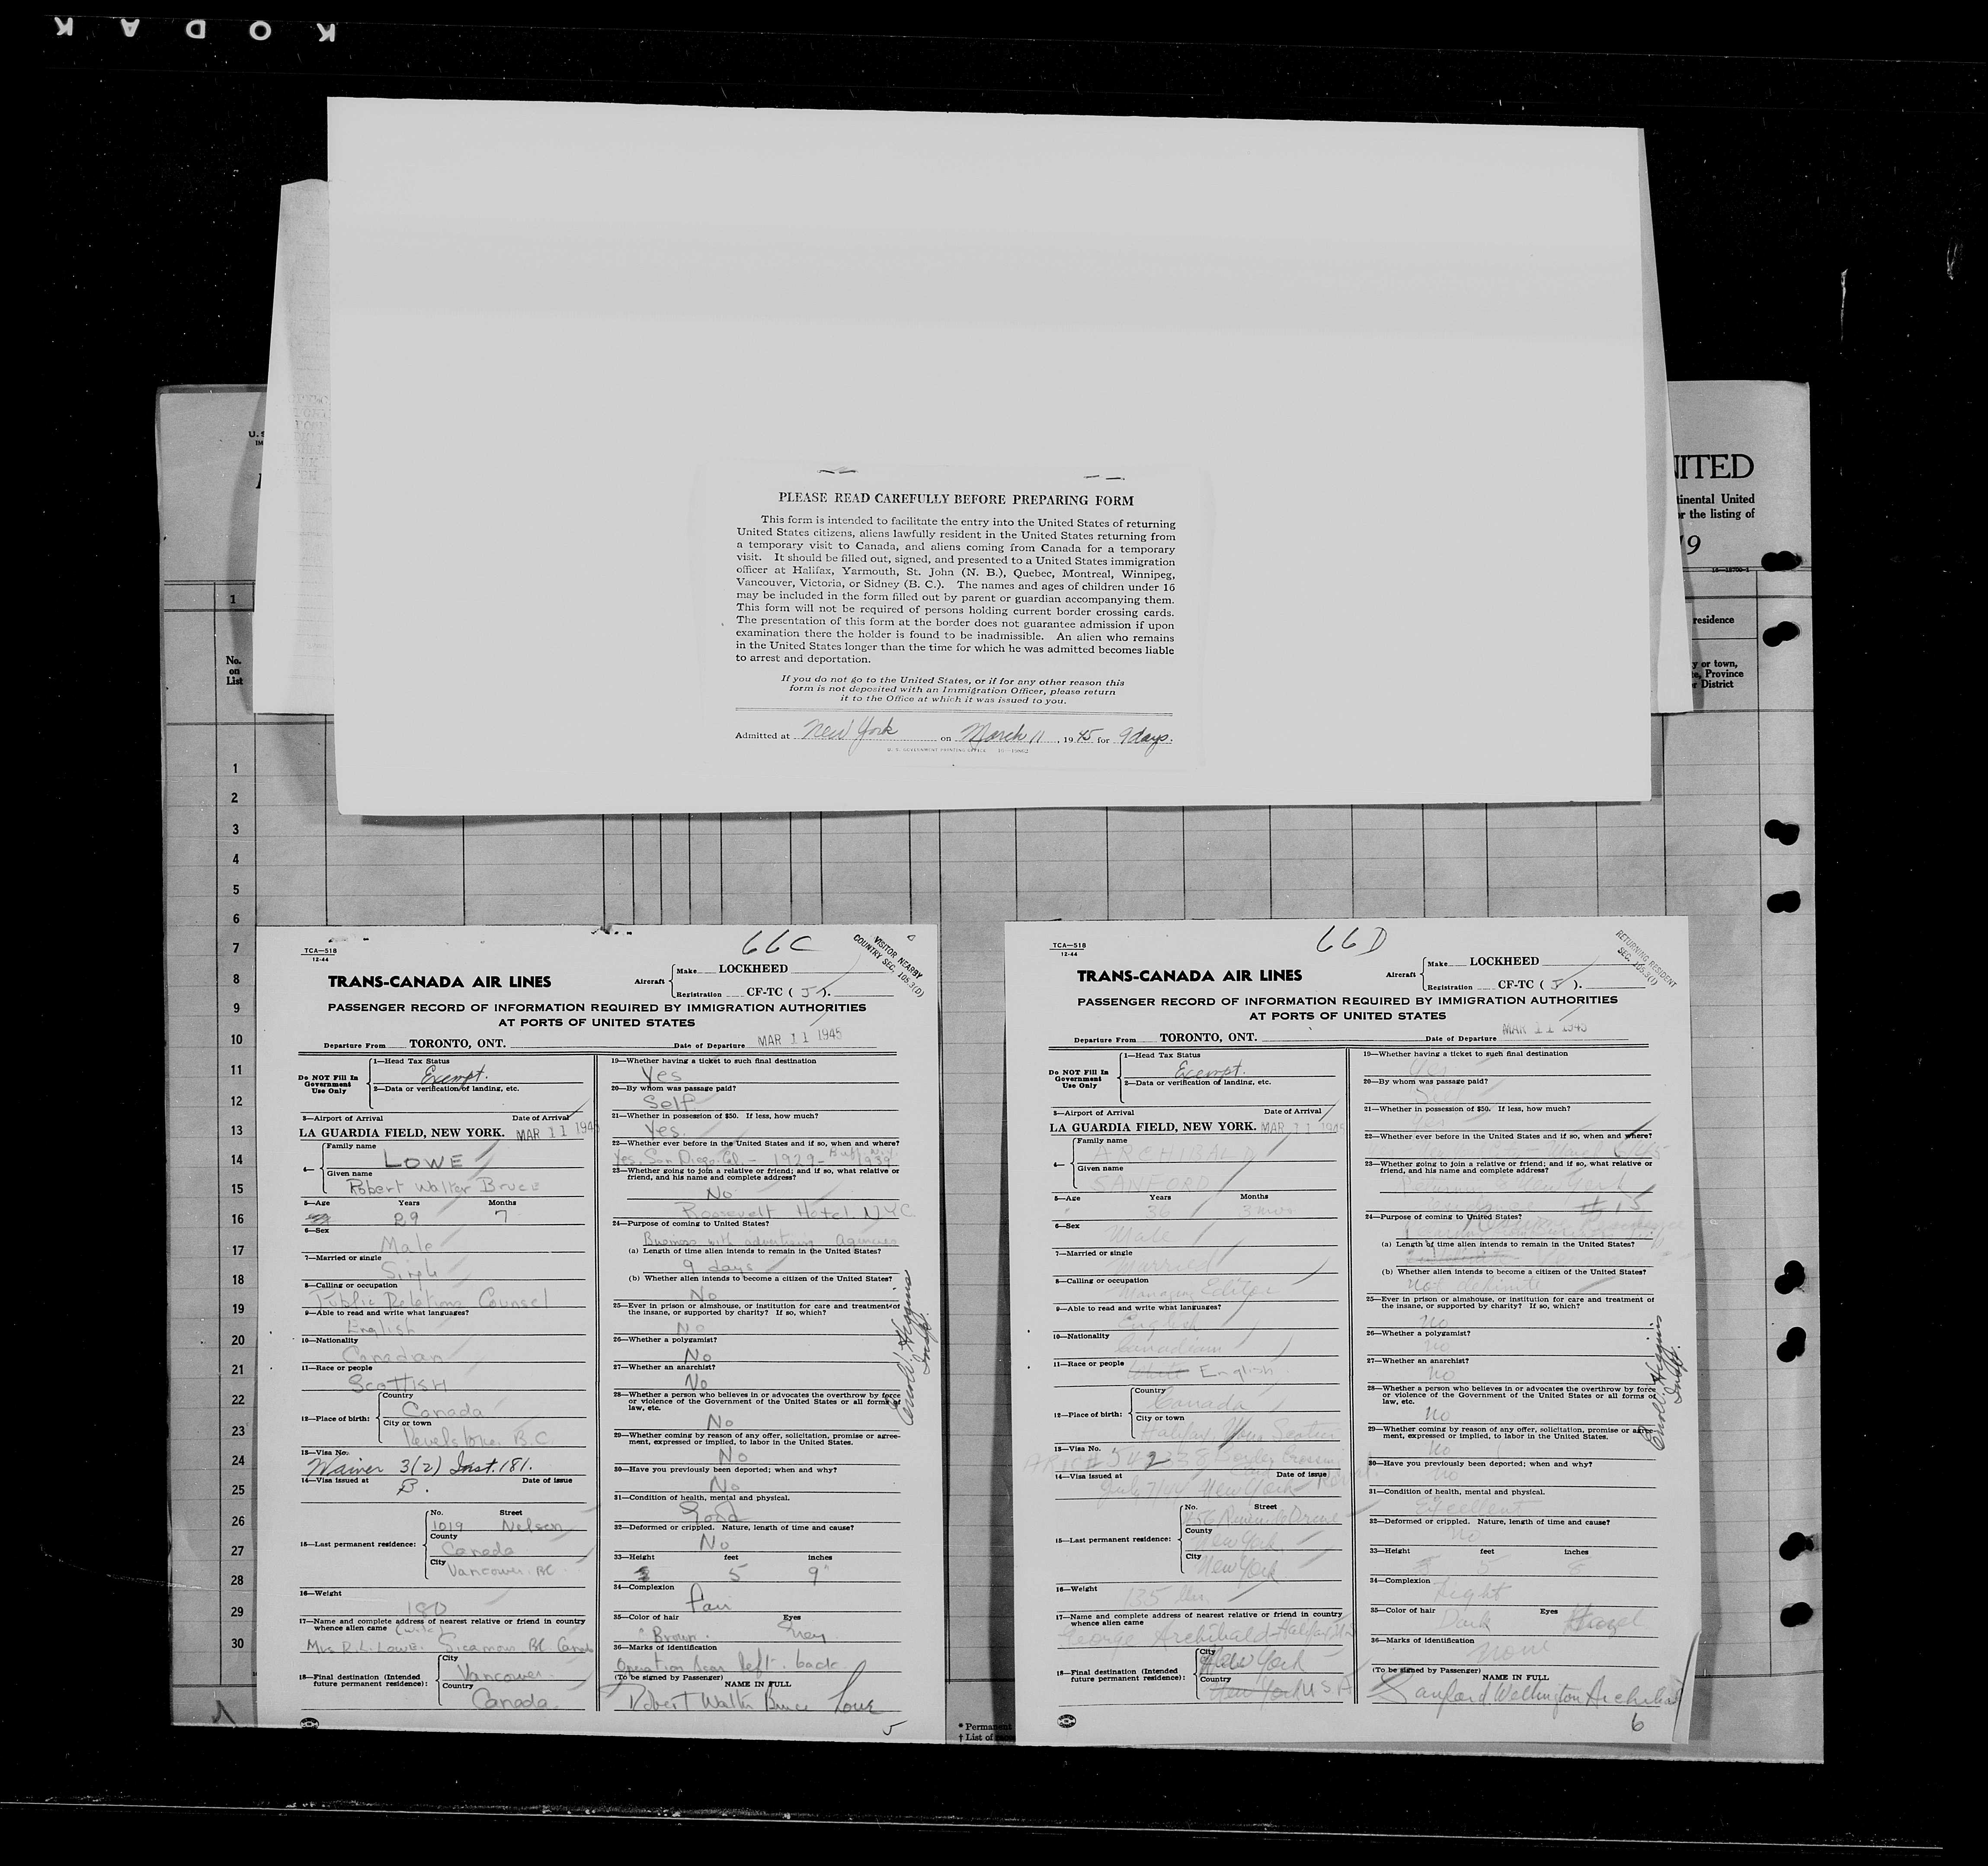 KODAK
U.S
IM
NITED
tinental United
r the listing of
19
residence
y or town,
te, Province
r District
1
No.
on
List
PLEASE READ CAREFULLY BEFORE PREPARING FORM
This form is intended to facilitate the entry into the United States of returning
United States citizens, aliens lawfully resident in the United States returning from
a temporary visit to Canada, and aliens coming from Canada for a temporary
visit. It should be filled out, signed, and presented to a United States immigration
officer at Halifax, Yarmouth, St. John (N. B.), Quebec, Montreal, Winnipeg,
Vancouver, Victoria, or Sidney (B. C.). The names and ages of children under 16
may be included in the form filled out by parent or guardian accompanying them.
This form will not be required of persons holding current border crossing cards.
The presentation of this form at the border does not guarantee admission if upon
examination there the holder is found to be inadmissible. An alien who remains
in the United States longer than the time for which he was admitted becomes liable
to arrest and deportation.
If you do not go to the United States, or if for any other reason this
form is not deposited with an Immigration Officer, please return
it to the Office at which it was issued to you.
Admitted at New York on March 11, 1945 for 9 days.
U. S. GOVERNMENT PRINTING OFFICE
1
2
3
4
5
6
7
8
9
10
11
12
13
14
15
16
17
18
19
20
21
22
23
24
25
26
27
28
29
30
TCA—518
12-44
66C
VISITOR NEARBY
COUNTRY SEC. 105.3(D)
TRANS-CANADA AIR LINES
Aircraft
Make LOCKHEED
Registration CF-TC ( J ).
PASSENGER RECORD OF INFORMATION REQUIRED BY IMMIGRATION AUTHORITIES
AT PORTS OF UNITED STATES
Departure From TORONTO, ONT. Date of Departure MAR 11 1945
Do NOT Fill In
Government
Use Only
1—Head Tax Status
Exempt.
2—Data or verification of landing, etc.
3—Airport of Arrival Date of Arrival
LA GUARDIA FIELD, NEW YORK. MAR 11 194
4—
Family name
LOWE
Given name
Robert Walter Bruce
5—Age Years Months
29 7
6—Sex
Male
7—Married or single
Single
8—Calling or occupation
Public Relations Counsel
9—Able to read and write what languages?
English
10—Nationality
Canadian
11—Race or people
Scottish
12—Place of birth:
Country
Canada
City or town
Revelstoke B.C.
13—Visa No.
Waiver 3(2) Inst. 181.
14—Visa issued at Date of issue
B.
15—Last permanent residence:
No. Street
1019 Nelson
County
Canada
City
Vancouver. BC
16—Weight
180
17—Name and complete address of nearest relative or friend in country
whence alien came
Mrs R.L. Lowe. Sicamous BC Canada
18—Final destination (Intended
future permanent residence):
City
Vancouver
Country
Canada
19—Whether having a ticket to such final destination
Yes
20—By whom was passage paid?
Self
21—Whether in possession of $50. If less, how much?
Yes.
22—Whether ever before in the United States and if so, when and where?
Yes. San Diego. Cal. – 1929 –
23—Whether going to join a relative or friend; and if so, what relative or
friend, and his name and complete address?
No
Roosevelt Hotel. NYC
24—Purpose of coming to United States?
Business with advertising Agencies
(a) Length of time alien intends to remain in the United States?
9 days
(b) Whether alien intends to become a citizen of the United States?
No
25—Ever in prison or almshouse, or institution for care and treatment of
the insane, or supported by charity? If so, which?
No
26—Whether a polygamist?
No
27—Whether an anarchist?
No
28—Whether a person who believes in or advocates the overthrow by force
or violence of the Government of the United States or all forms of
law, etc.
No
29—Whether coming by reason of any offer, solicitation, promise or agree-
ment, expressed or implied, to labor in the United States.
No
30—Have you previously been deported; when and why?
No
31—Condition of health, mental and physical.
Good
32—Deformed or crippled. Nature, length of time and cause?
No
33—Height feet inches
5 9"
34—Complexion
Fair
35—Color of hair Eyes
Brown. Grey
36—Marks of identification
Operation scar left. back
(To be signed by Passenger)
NAME IN FULL
Robert Walter Bruce Lowe
5
* Permanent
† List of
TCA—518
12-44
66D
RETURNING RESIDENT
SEC. 105.3(1)
TRANS-CANADA AIR LINES
Aircraft
Make LOCKHEED
Registration CF-TC ( J ).
PASSENGER RECORD OF INFORMATION REQUIRED BY IMMIGRATION AUTHORITIES
AT PORTS OF UNITED STATES
Departure From TORONTO, ONT. Date of Departure MAR 11 1945
Do NOT Fill In
Government
Use Only
1—Head Tax Status
Exempt.
2—Data or verification of landing, etc.
3—Airport of Arrival Date of Arrival
LA GUARDIA FIELD, NEW YORK. MAR 11 1945
4—
Family name
ARCHIBALD
Given name
SANFORD
5—Age Years Months
36 3 mos
6—Sex
Male
7—Married or single
Married
8—Calling or occupation
Managing Editor
9—Able to read and write what languages?
English
10—Nationality
Canadian
11—Race or people
White English
12—Place of birth:
Country
Canada
City or town
Halifax, Nova Scotia
13—Visa No.
14—Visa issued at Date of issue
July 7/44 New York
15—Last permanent residence:
No. Street
Drive
County
New York
City
New York
16—Weight
135 lbs.
17—Name and complete address of nearest relative or friend in country
whence alien came
George Archibald – Halifax
18—Final destination (Intended
future permanent residence):
City
New York
Country
New York U.S.A
19—Whether having a ticket to such final destination
Yes
20—By whom was passage paid?
Self
21—Whether in possession of $50. If less, how much?
Yes
22—Whether ever before in the United States and if so, when and where?
23—Whether going to join a relative or friend; and if so, what relative or
friend, and his name and complete address?
Return to New York
24—Purpose of coming to United States?
Resume Residence
(a) Length of time alien intends to remain in the United States?
(b) Whether alien intends to become a citizen of the United States?
Not definite
25—Ever in prison or almshouse, or institution for care and treatment of
the insane, or supported by charity? If so, which?
No
26—Whether a polygamist?
No
27—Whether an anarchist?
No
28—Whether a person who believes in or advocates the overthrow by force
or violence of the Government of the United States or all forms of
law, etc.
No
29—Whether coming by reason of any offer, solicitation, promise or agree-
ment, expressed or implied, to labor in the United States.
No
30—Have you previously been deported; when and why?
No
31—Condition of health, mental and physical.
Excellent
32—Deformed or crippled. Nature, length of time and cause?
No
33—Height feet inches
5 8
34—Complexion
Light
35—Color of hair Eyes
Dark Hazel
36—Marks of identification
None
(To be signed by Passenger)
NAME IN FULL
Sanford Wellington Archibald
6